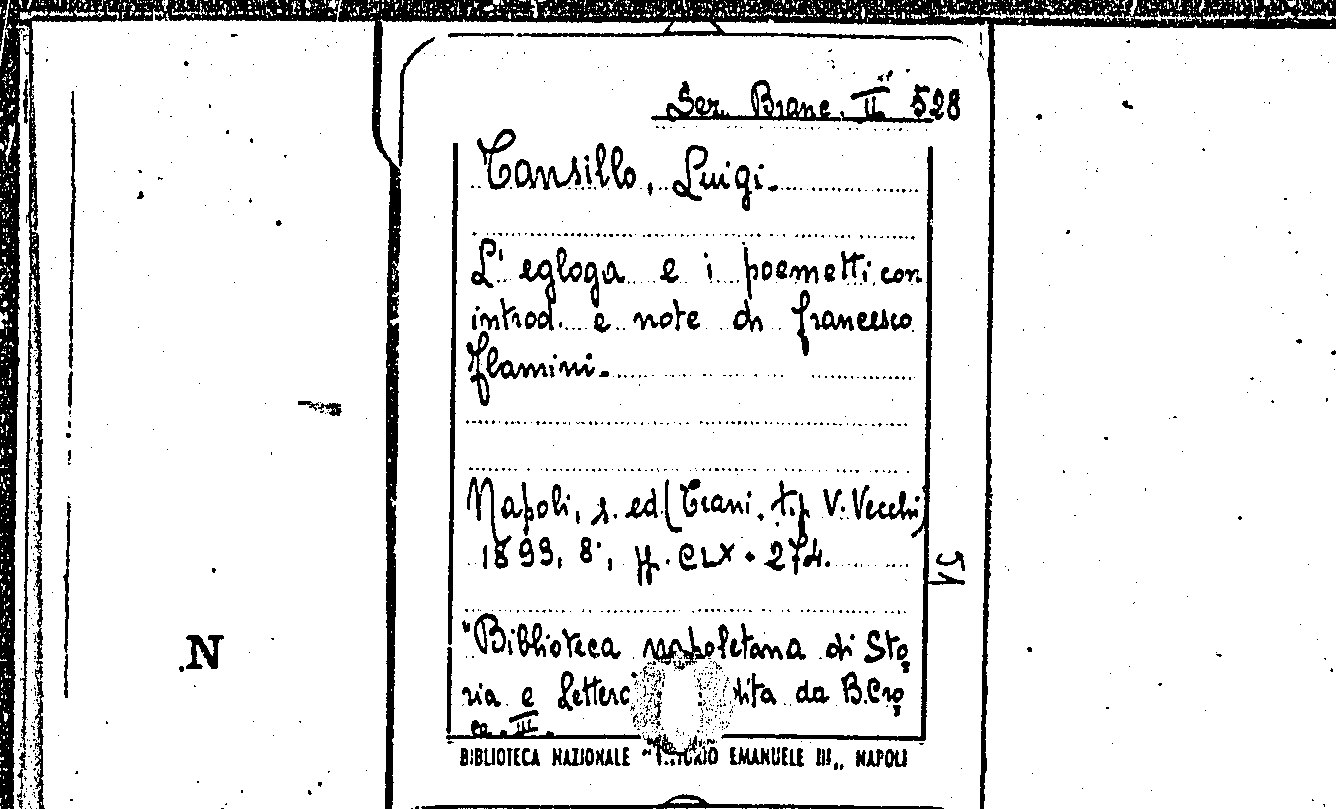 Sez. Branc. II 528
Tansillo, Luigi.
L' egloga e i poemetti con
introd. e note di Francesco
Flamini.
Napoli, s. ed (Trani, tip V. Vecchi)
1899, 8°, pp. CLX + 274.
"Biblioteca napoletana di Sto
ria e da B. Cro
ce. III.
BIBLIOTECA NAZIONALE EMANUELE III,, NAPOLI
51
N